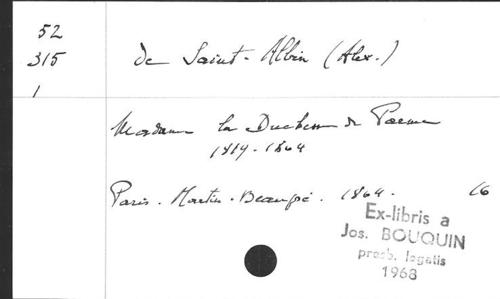 52
315
1
de Saint-Albin (Alex.)
Madame la Duchesse de Parme
1819-1864
Paris. Martin-Beaupré. 1864. 16
Ex-libris a
Jos. BOUQUIN
presb. legatis
1968